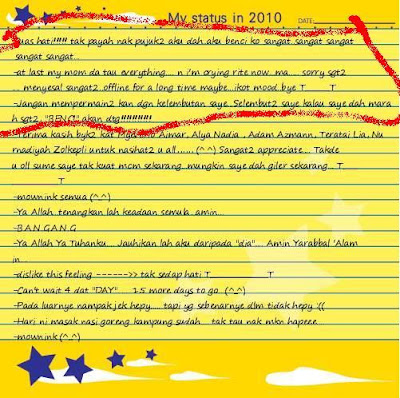 My status in 2010 DATE:
-Puas hati!!## tak payah nak pujuk2 aku dah..aku benci ko sangat..sangat..sangat
sangat sangat..
-at last my mom da tau everything... n i'm crying rite now..ma.... sorry sgt2
... menyesal sangat2..offline for a long time maybe..ikot mood bye T T
-Jangan mempermain2 kan dgn kelembutan saye..Selembut2 saye kalau saye dah mara
h sgt2, "BENCI" akan dtg!!######
-Terima kasih byk2 kat Aimar, Alya Nadia , Adam Azmann, Teratai Lia, Nu
rnadiyah Zolkepli untuk nasihat2 u all...... (^_^) Sangat2 appreciate... Takde
u oll sume saye tak kuat mcm sekarang..mungkin saye dah giler sekarang.. T
T
-mownink semua (^_^)
-Ya Allah..tenangkan lah keadaan semula..amin..
-B.A.N.G.A.N.G
-Ya Allah Ya Tuhanku... Jauhikan lah aku daripada "dia"... Amin Yarabbal 'Alam
in..
-dislike this feeling ------>> tak sedap hati T T
-Can't wait 4 dat "DAY" .... 15 more days to go.. (^_^)
-Pada luarnye nampak jek hepy..... tapi yg sebenarnye dlm tidak hepy :((
-Hari ni masak nasi goreng kampung sudah... tak tau nak mkn hapeee..
-mownink (^_^)